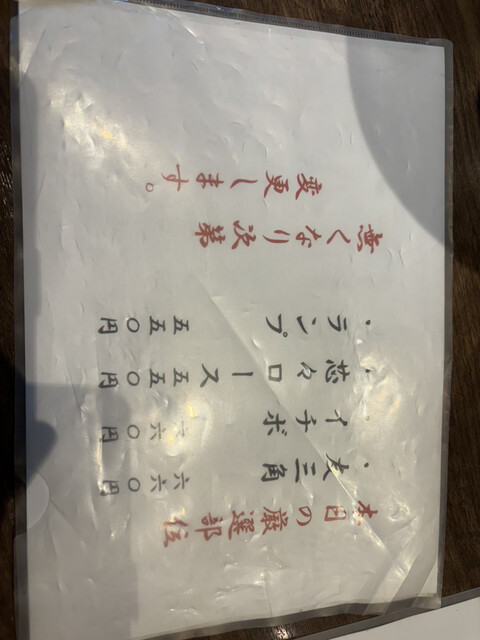 本日の厳選部位
・友三角 六六〇円
・イチボ 六六〇円
・芯々ロース 五五〇円
・ランプ 五五〇円
無くなり次第
変更します。